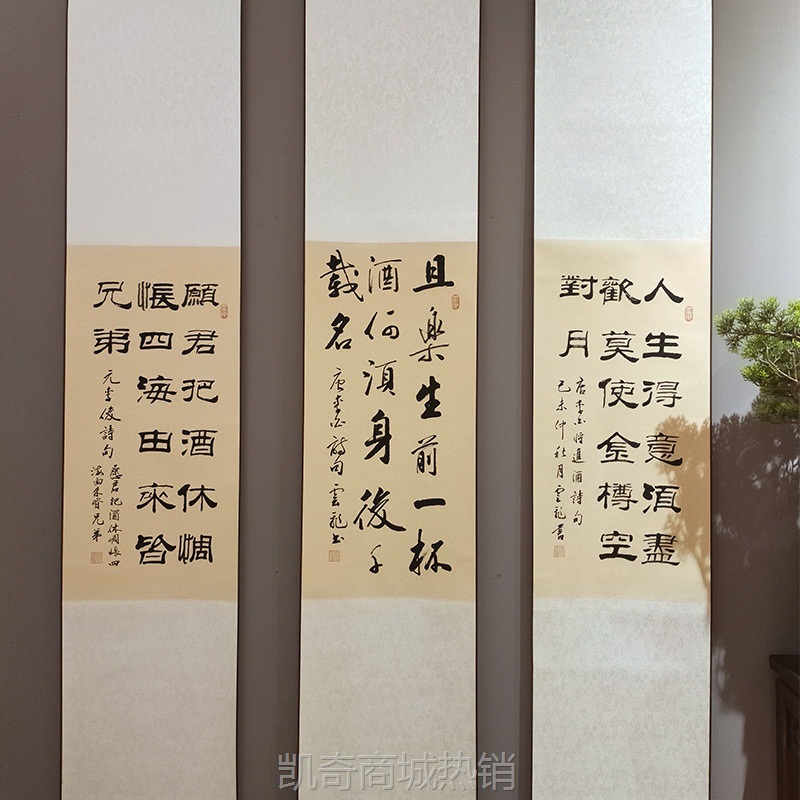 人生得意須盡
歡莫使金樽空
對月
唐李白將進酒詩句
己未仲秋月雲龍書
且樂生前一杯
酒何須身後千
載名
唐李白詩句雲龍書
願君把酒休惆
悵四海由來皆
兄弟
元李俊詩句
愿君把酒休惆悵四
海由來皆兄弟
凯奇商城热销